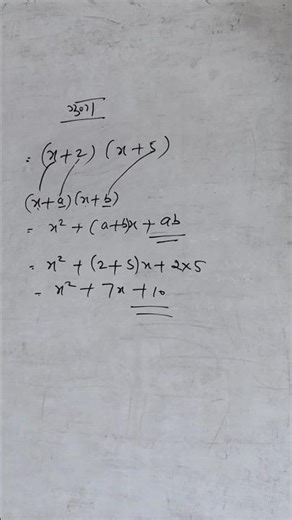 = (x+2) (x+5)
(x+a)(x+b)
= x² + (a+b)x + ab
= x² + (2+5)x + 2×5
= x² + 7x + 10